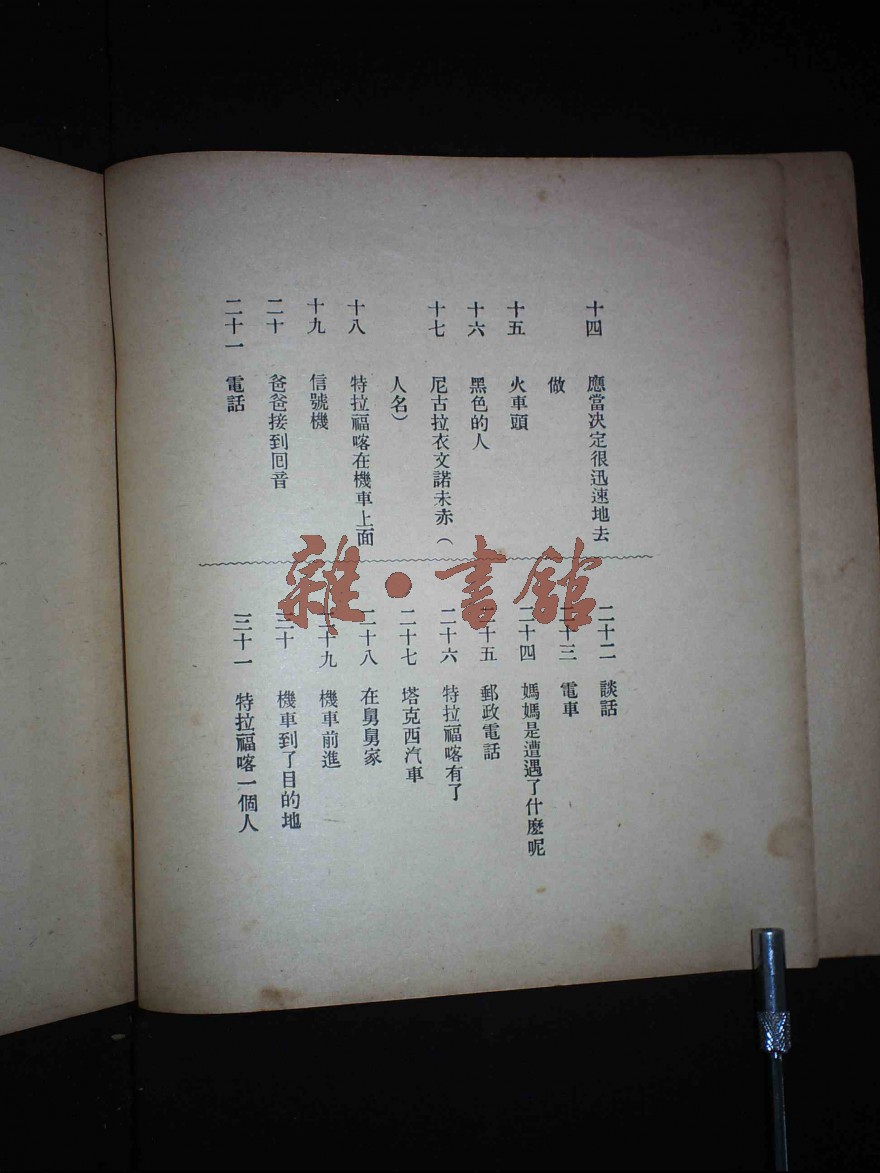 十四 應當決定很迅速地去
做
十五 火車頭
十六 黑色的人
十七 尼古拉衣文諾未赤（
人名）
十八 特拉福喀在機車上面
十九 信號機
二十 爸爸接到回音
二十一 電話
二十二 談話
二十三 電車
二十四 媽媽是遭遇了什麼呢
二十五 郵政電話
二十六 特拉福喀有了
二十七 塔克西汽車
二十八 在舅舅家
二十九 機車前進
三十 機車到了目的地
三十一 特拉福喀一個人
雜·書館